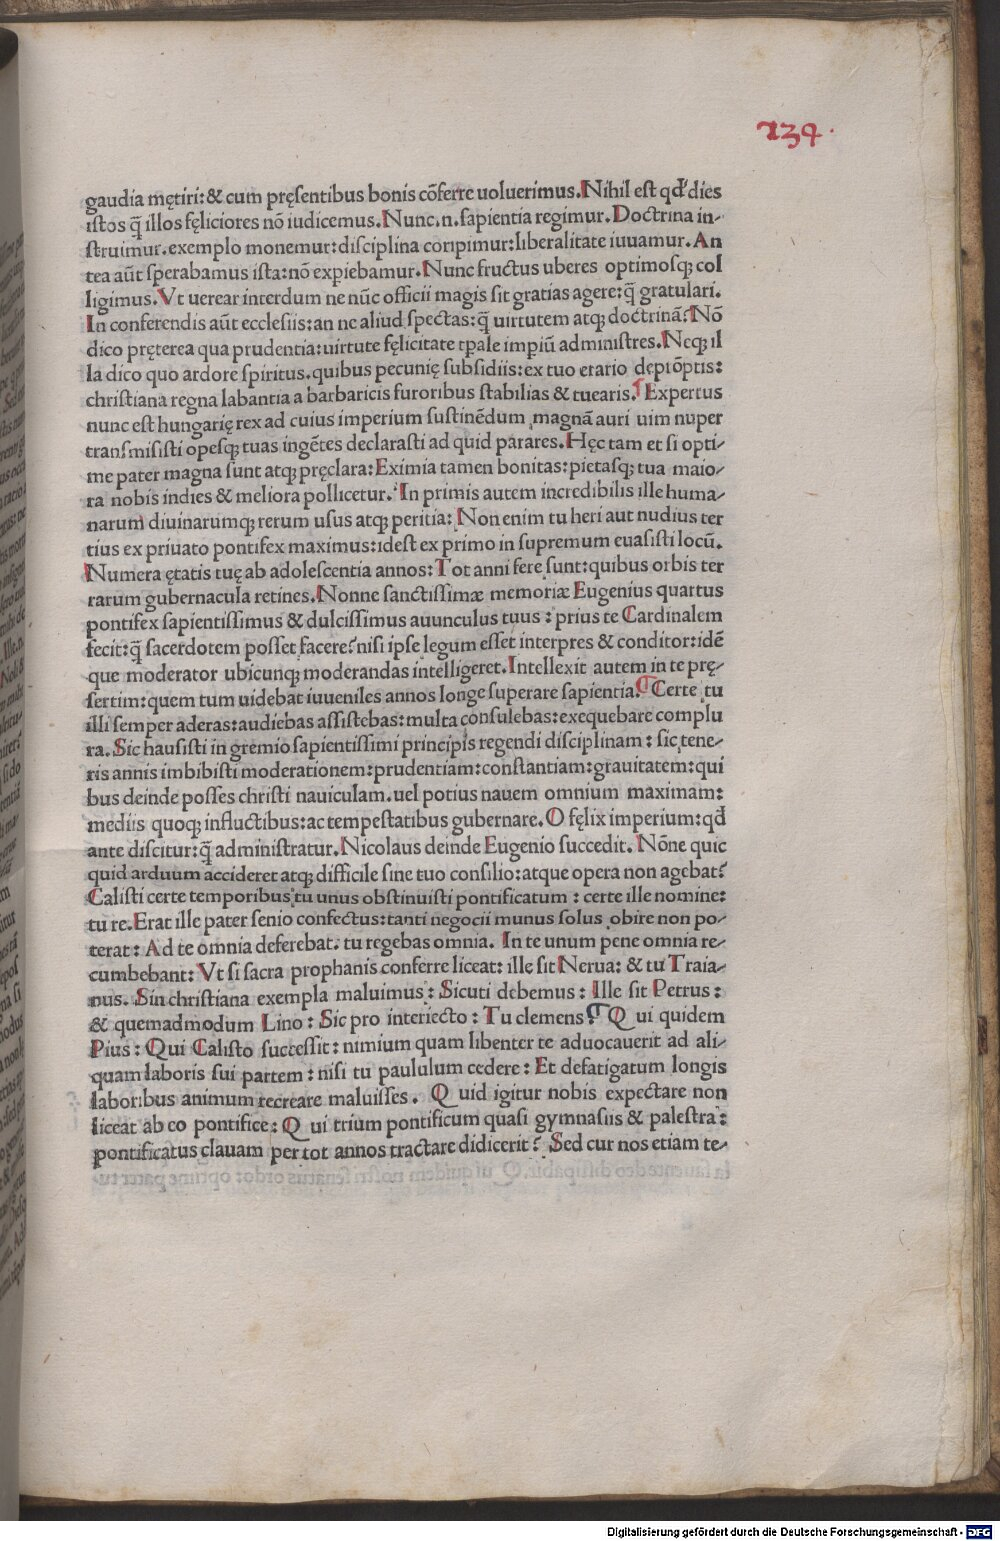 234.
gaudia mętiri:& cum pręsentibus bonis cõferre uoluerimus.Nihil est qđ dies
istos q̃ illos fęliciores nõ iudicemus.Nunc.n.sapientia regimur.Doctrina in-
struimur.exemplo monemur:disciplina coripimur:liberalitate iuuamur.An
tea aũt sperabamus ista:nõ expiebamur.Nunc fructus uberes optimosq; col
ligimus.Vt uerear interdum ne nũc officii magis sit gratias agere:q̃ gratulari.
In conferendis aũt ecclesiis:an ne aliud spectas:q̃ uirtutem atq; doctrinã?Nõ
dico pręterea qua prudentia:uirtute fęlicitate tpale impiũ administres.Neq; il
la dico quo ardore spiritus.quibus pecunię subsidiis:ex tuo erario depróptis:
christiana regna labantia a barbaricis furoribus stabilias & tuearis.¶ Expertus
nunc est hungarię rex ad cuius imperium sustinẽdum magnã auri uim nuper
transmisisti opesq; tuas ingẽtes declarasti ad quid parares.Hęc tam et si opti-
me pater magna sunt atq; pręclara:Eximia tamen bonitas:pietasq; tua maio-
ra nobis indies & meliora pollicetur.In primis autem incredibilis ille huma-
narum diuinarumq; rerum usus atq; peritia:Non enim tu heri aut nudius ter
tius ex priuato pontifex maximus:idest ex primo in supremum euasisti locũ.
Numera ętatis tuę ab adolescentia annos:Tot anni fere sunt:quibus orbis ter
rarum gubernacula retines.Nonne sanctissimæ memoriæ Eugenius quartus
pontifex sapientissimus & dulcissimus auunculus tuus:prius te Cardinalem
fecit:q̃ sacerdotem posset facere?nisi ipse legum esset interpres & conditor:idẽ
que moderator ubicunq; moderandas intelligeret.Intellexit autem in te prę-
sertim:quem tum uidebat iuueniles annos longe superare sapientia.¶Certe tu
illi semper aderas:audiebas assistebas:multa consulebas:exequebare complu
ra.Sic hausisti in gremio sapientissimi principis regendi disciplinam:sic tene-
ris annis imbibisti moderationem:prudentiam:constantiam:grauitatem:qui
bus deinde posses christi nauiculam.uel potius nauem omnium maximam:
mediis quoq; influctibus:ac tempestatibus gubernare.O fęlix imperium:qđ
ante discitur:q̃ administratur.Nicolaus deinde Eugenio succedit.Nõne quic
quid arduum accideret atq; difficile sine tuo consilio:atque opera non agebat?
Calisti certe temporibus tu unus obstinuisti pontificatum:certe ille nomine:
tu re.Erat ille pater senio confectus:tanti negocii munus solus obire non po-
terat:Ad te omnia deferebat.tu regebas omnia.In te unum pene omnia re-
cumbebant:Vt si sacra prophanis conferre liceat:ille sit Nerua:& tu Traia-
nus.Sin christiana exempla maluimus:Sicuti debemus:Ille sit Petrus:
& quemadmodum Lino:Sic pro interiecto:Tu clemens.¶Qui quidem
Pius:Qui Calisto successit:nimium quam libenter te aduocauerit ad ali-
quam laboris sui partem:nisi tu paululum cedere:Et defatigatum longis
laboribus animum recreare maluisses.Quid igitur nobis expectare non
liceat ab eo pontifice:Qui trium pontificum quasi gymnasiis & palestra:
pontificatus clauam per tot annos tractare didicerit?Sed cur nos etiam te-
Digitalisierung gefördert durch die Deutsche Forschungsgemeinschaft - DFG